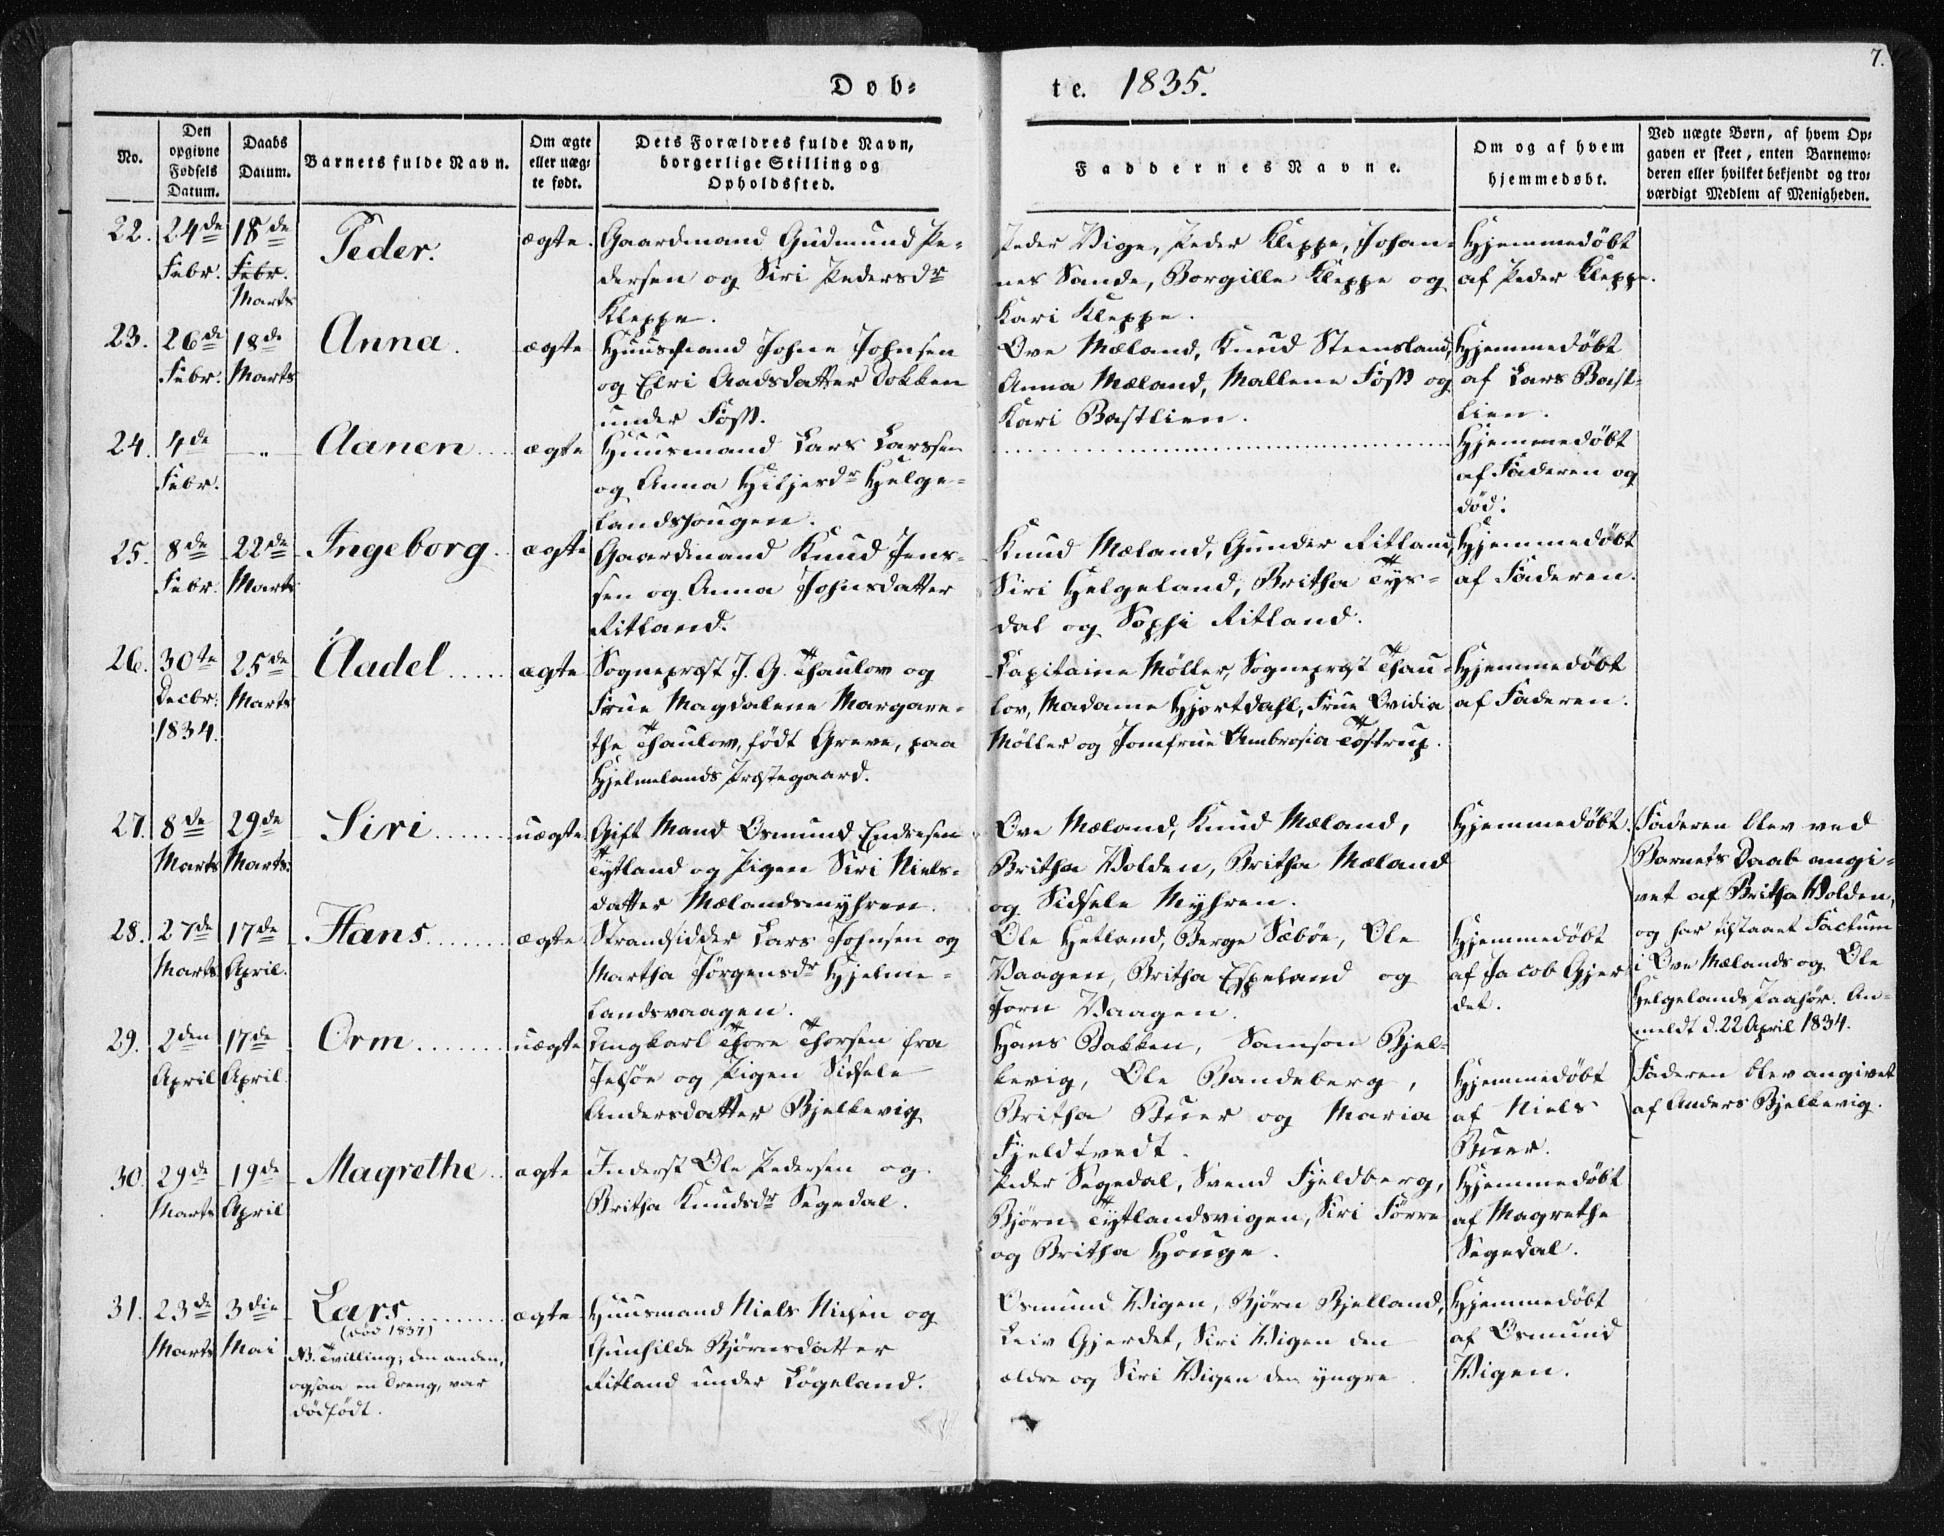 7.
Døb=
te. 1835.
No.
Den
opgivne
Fødsels
Datum.
Daabs
Datum.
Barnets fulde Navn.
Om ægte
eller uæg-
te født.
Dets Forældres fulde Navn,
borgerlige Stilling og
Opholdssted.
Faddernes Navne.
Om og af hvem
hjemmedøbt.
Ved uægte Børn, af hvem Op=
gaven er skeet, enten Barnemo=
deren eller hvilket bekjendt og tro=
værdigt Medlem af Menigheden.
22.
24de
Febr.
18de
Febr.
Marts
Peder.
ægte.
Gaardmand Gudmund Pe-
dersen og Siri Pedersdr
Kleppe.
Peder Vige, Peder Kleppe, Johan-
nes Sande, Borgille Kleppe og
Kari Kleppe.
Hjemmedøbt
af Peder Kleppe.
23.
26de
Febr.
18de
Marts
Anna.
ægte
Huusmand Johne Johnsen
og Elri Aadsdatter Dokken
under Foss.
Ove Mæland, Knud Steensland,
Anna Mæland, Mallene Foss og
Kari Bastlien.
Hjemmedøbt
af Lars Bast-
lien.
24.
4de
Febr.
— „ —
Aanen
ægte
Huusmand Lars Larssen
og Anna Hiljesdr Helge-
landshougen.
Hjemmedøbt
af Faderen og
død.
25.
8de
Febr.
22de
Marts
Ingeborg
ægte
Gaardmand Knud Jens-
sen og Anna Johnsdatter
Ritland.
Knud Mæland, Gunder Ritland,
Siri Helgeland, Britha Tys-
dal og Sophi Ritland.
Hjemmedøbt
af Faderen.
26.
30te
Decbr.
1834.
25de
Marts
Aadel
ægte
Sognepræst J. G. Thaulow og
Frue Magdalene Margare-
the Thaulow, født Greve, paa
Hjelmelands Præstegaard.
Kapitaine Møller, Sognepræst Thau-
lov, Madame Hjortdahl, Frue Ovidia
Møller og Jomfrue Ambrosia Tostrup.
Hjemmedøbt
af Faderen.
27.
8de
Marts
29de
Marts.
Siri
uægte
Gift Mand Osmund Endresen
Tytland og Pigen Siri Niels-
datter Mælandsmyhren.
Ove Mæland, Knud Mæland,
Britha Volden, Britha Mæland
og Sidsele Myhren.
Hjemmedøbt
Faderen blev ved
Barnets Daab angi-
vet af Britha Volden,
og har tilstaaet Factum
i Ove Mælands og Ole
Helgelands Paahør. An-
meldt d. 22 April 1834.
28.
27de
Marts
17de
April.
Hans
ægte
Strandsidder Lars Johnsen og
Martha Jørgensdr Hjelme-
landsvaagen.
Ole Hetland, Berge Sæbøe, Ole
Vaagen, Britha Espeland og
Jorn Vaagen.
Hjemmedøbt
af Jacob Gjer
det.
29.
2den
April
17de
April.
Orm
uægte
Ungkarl Thore Thorsen fra
Jelsøe og Pigen Sidsele
Andersdatter Bjelkevig
Hans Bakken, Samson Bjel-
kevig, Ole Bandeberg,
Britha Buer og Maria
Fjeldtvedt.
Hjemmedøbt
af Niels
Buer.
Faderen blev angivet
af Anders Bjelkevig.
30.
29de
Marts
19de
April
Magrethe
ægte
Inderst Ole Pedersen og
Britha Knudsdr Segedal.
Peder Segedal, Svend Fjeldberg,
Bjørn Tytlandsvigen, Siri Førre
og Britha Houge.
Hjemmedøbt
af Magrethe
Segedal.
31.
23de
Marts
3die
Mai
Lars
(død 1837)
NB. Tvilling; den anden,
ogsaa en Dreng, var
dødfødt.
ægte
Huusmand Niels Nielsen og
Gunhilde Bjørnsdatter
Ritland under Løgeland.
Osmund Vigen, Bjørn Bjelland,
Leiv Gjerdet, Siri Vigen den
ældre og Siri Vigen den yngre
Hjemmedøbt
af Osmund
Vigen.